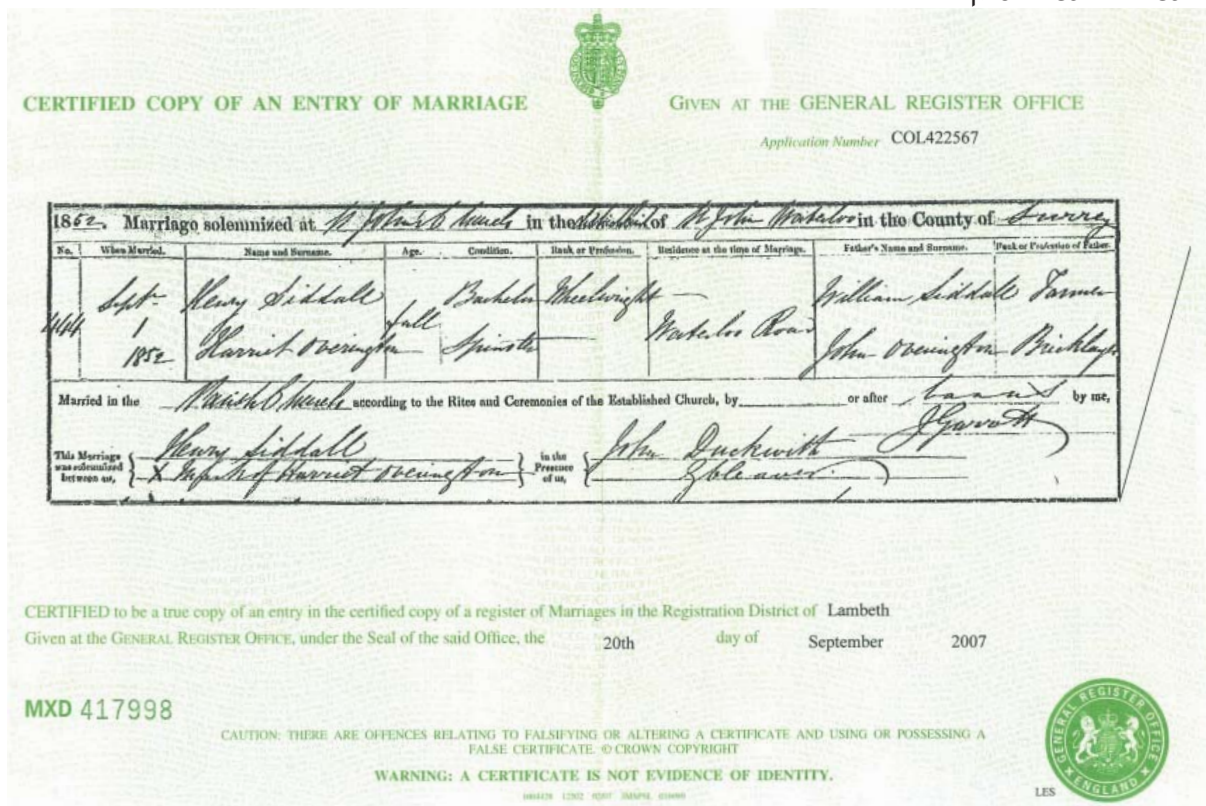 CERTIFIED COPY OF AN ENTRY OF MARRIAGE
GIVEN AT THE GENERAL REGISTER OFFICE
Application Number COL422567
1852. Marriage solemnized at St John's Church in the of St John Waterloo in the County of Surrey
No. When Married. Name and Surname. Age. Condition. Rank or Profession. Residence at the time of Marriage. Father's Name and Surname. Rank or Profession of Father.
444 Sept 1 1852
Henry Siddall full Bachelor Wheelwright — William Siddall Farmer
Harriet Overington Spinster — Waterloo Road John Overington Bricklayer
Married in the Parish Church according to the Rites and Ceremonies of the Established Church, by or after banns by me,
J Garrett
This Marriage was solemnized between us, Henry Siddall
X Mark of Harriet Overington
in the Presence of us, John Duckwith
CERTIFIED to be a true copy of an entry in the certified copy of a register of Marriages in the Registration District of Lambeth
Given at the GENERAL REGISTER OFFICE, under the Seal of the said Office, the 20th day of September 2007
MXD 417998
CAUTION: THERE ARE OFFENCES RELATING TO FALSIFYING OR ALTERING A CERTIFICATE AND USING OR POSSESSING A
FALSE CERTIFICATE. © CROWN COPYRIGHT
WARNING: A CERTIFICATE IS NOT EVIDENCE OF IDENTITY.
LES
GENERAL REGISTER OFFICE
ENGLAND